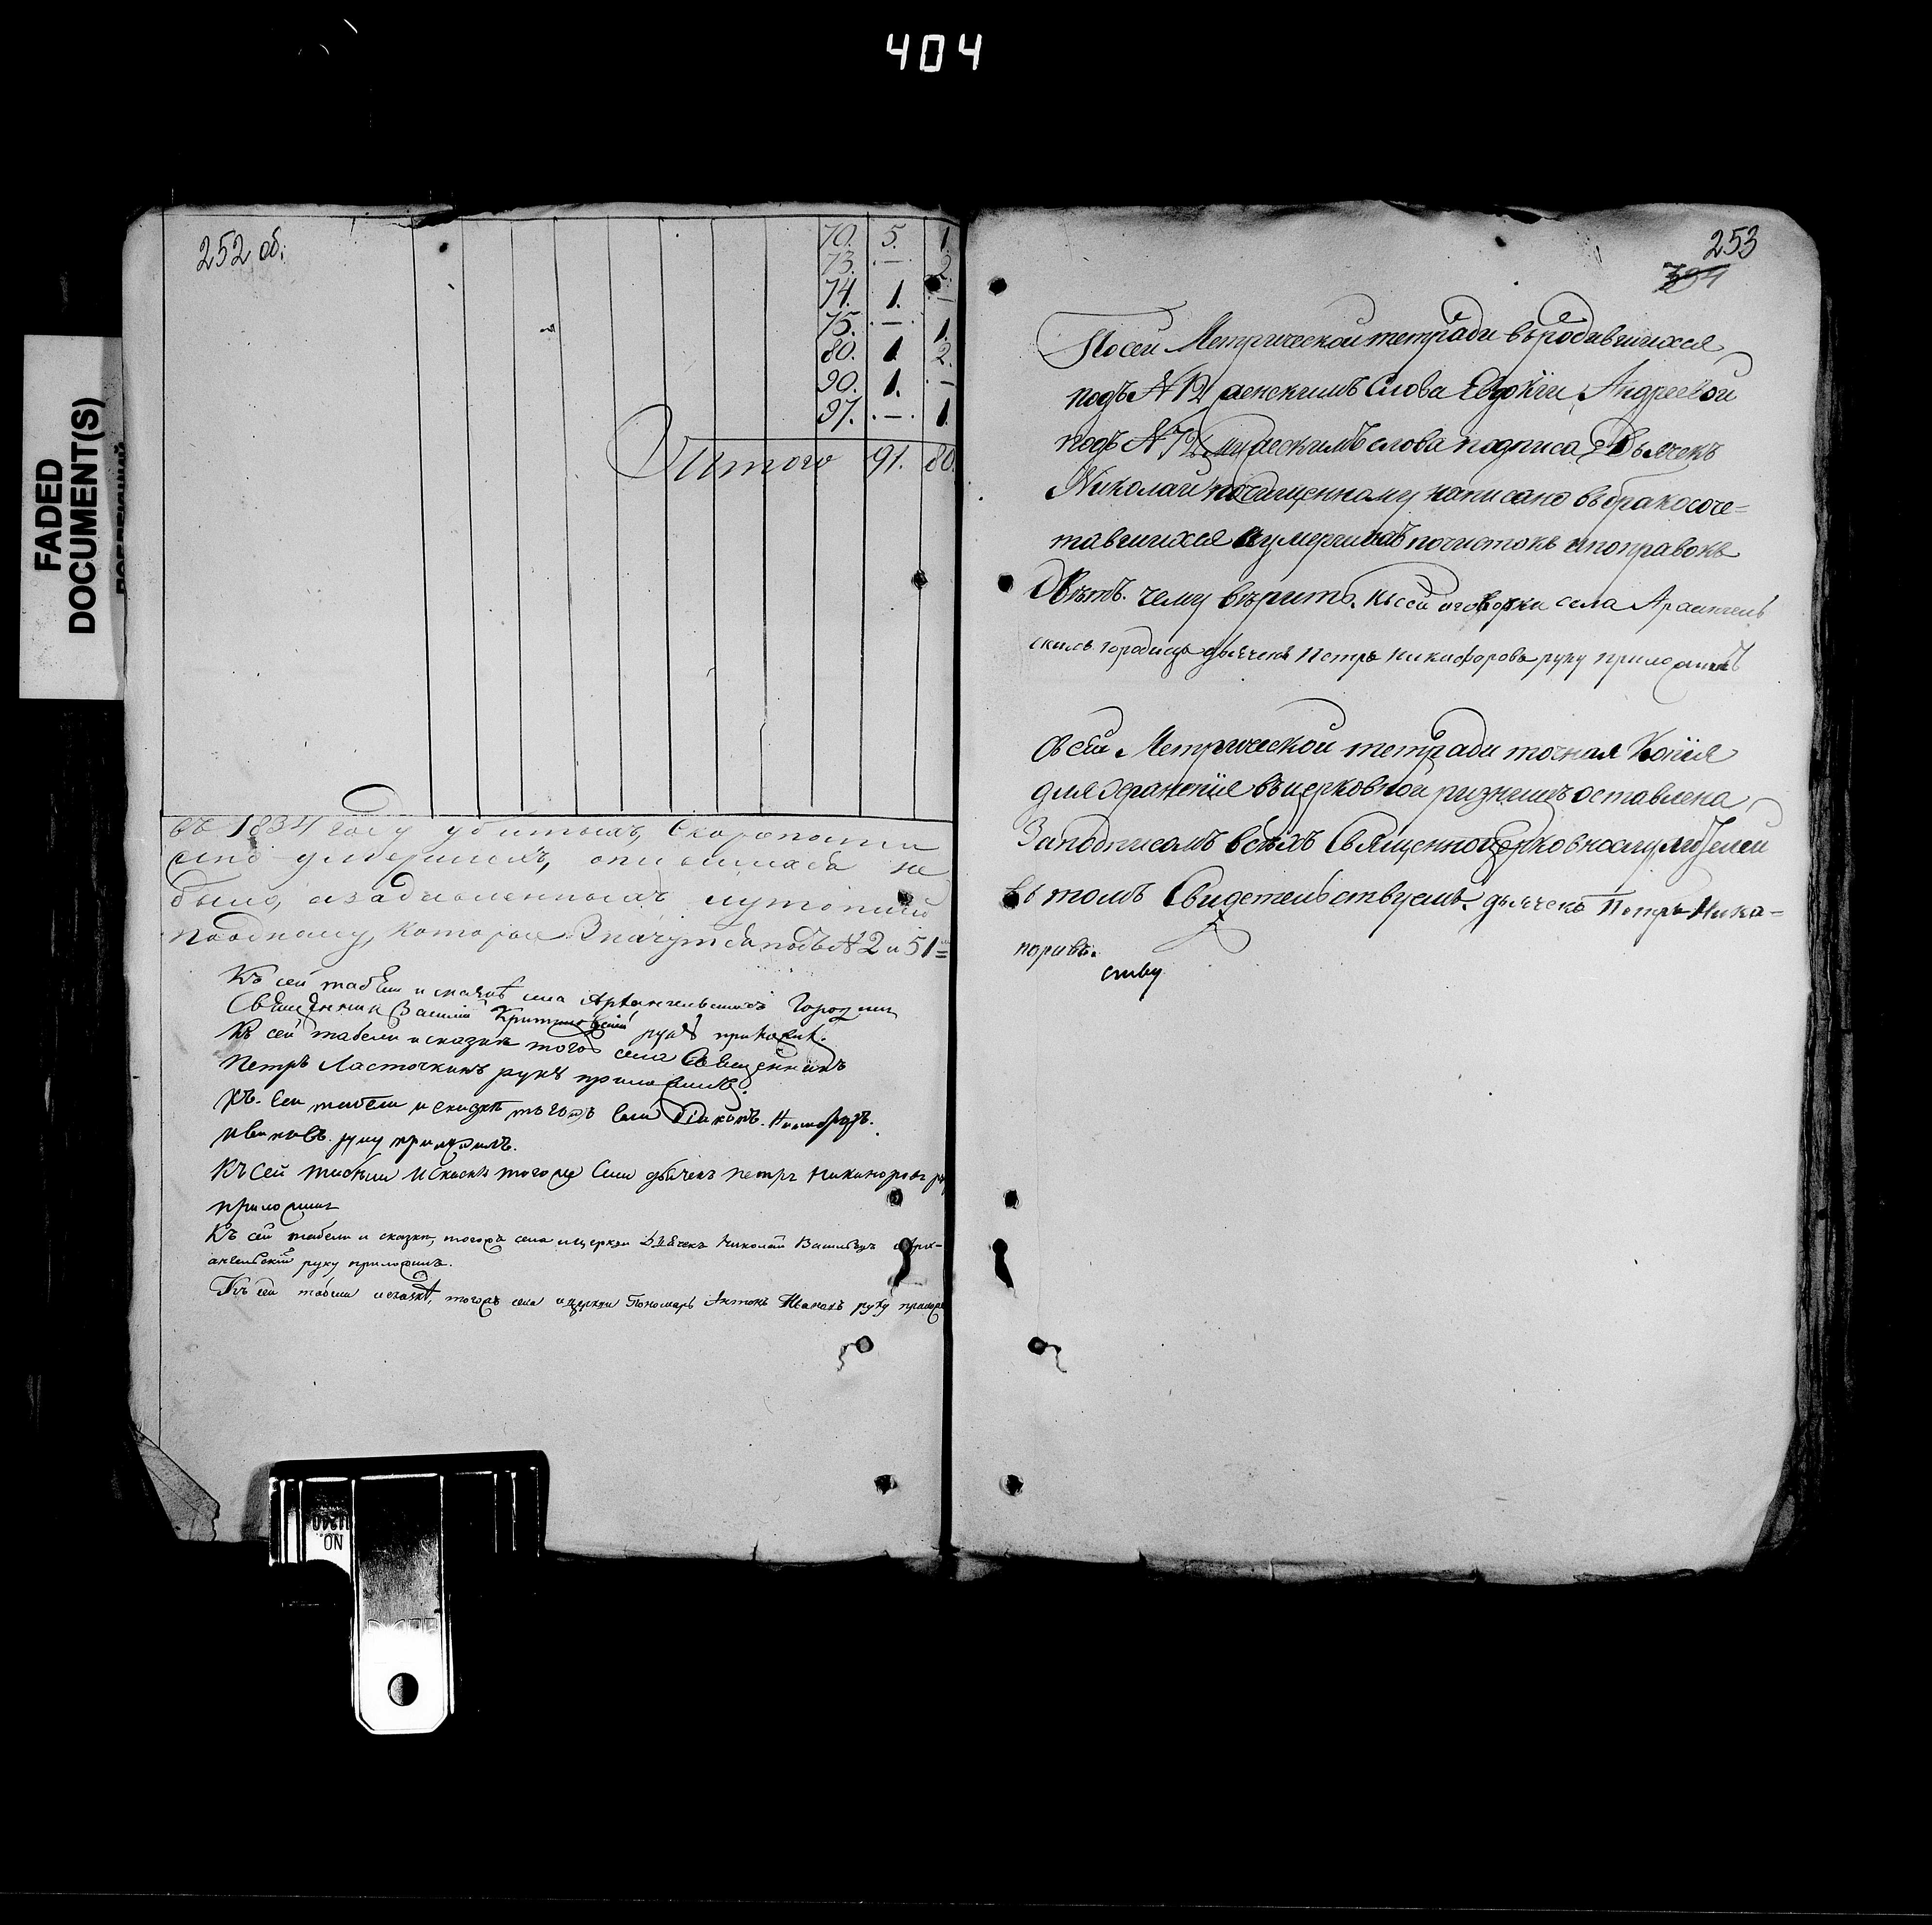 404
FADED
DOCUMENT(S)
252 об:
70. 5. 1.
73. — 2.
74. 1. —
75. — 1.
80. 1. 2.
90. 1. —
97. — 1.
Итого 91. 80.
въ 1834 году убитыхъ, скоропости
жно умершихъ, опившихся не
было, а задавленныхъ
по одному, которые значутся подъ № 2 и 51 =
Къ сей табели и сказкѣ села Архангельскихъ Городищь
Священникъ Василий руку приложилъ.
Къ сей табели и сказкѣ того села Священникъ
Петръ Ласточкинъ руку приложилъ.
Къ сей табели и сказкѣ тогожъ села Діаконъ
Ивановъ руку приложилъ.
Къ сей табели и сказкѣ тогоже села дьячекъ петръ Никаноровъ
приложилъ
Къ сей табели и сказкѣ, тогожъ села и церкви Дьячекъ Николай Васильевъ Арх-
ангельский руку приложилъ.
Къ сей табели и сказкѣ, тогожъ села и церкви Пономарь Антонъ Ивановъ руку прилож
253
По сей Метрической тетради въ родившихся
подъ № 12 женскимъ слова Евдокіи Андреевой
подъ № 72 мужескимъ слова подписа Дьячекъ
Николай почищенному написано въ бракосоче=
тавшихся и умершихъ почистокъ и поправокъ
нѣтъ. чему вѣрить. Къ сей оговорки села Архангель
скихъ городищь дьячекъ Петръ Никифоровъ руку приложилъ
Съ сей Метрической тетради точная Копія
для храненія въ церковной ризницѣ оставлена
За подписомъ всѣхъ Священноцерковнослужителей
въ томъ Свидетельствуемъ. дьячекъ Петръ Ника=
норивъ.
ству
NO.